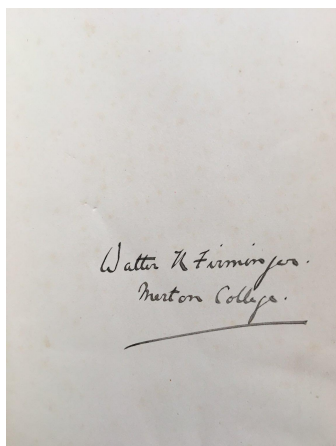 Walter K Firminger.
Merton College.